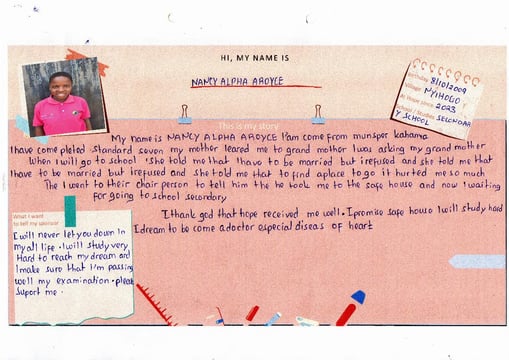 HI, MY NAME IS
NANCY ALPHA AROYCE
Birthday 8/10/2009
Village MYIHOGO
At Hope since 2023
School / Studies SECONDAR
Y SCHOOL
This is my story
My name is NANCY ALPHA AROYCE I'am come from munsper kahama
I have come pleted standard seven my mother leared me to grand mother I was asking my grand mother
When I will go to school . She told me that I have to be married but i refused and she told me that
I have to be married but i refused and she told me that to find a place to go it hurted me so much
The I went to their chair person to tell him the he took me to the safe house and now I waiting
For going to school secondory
I thank god that hope received me well . I promise safe house I will study hard
I dream to be come a doctor especial diseas of heart
What I want
to tell my sponsor
I will never let you down In
my all life . I will study very
Hard to reach my dream and
I make sure that I'm passing
well my examination . pleas
Suport me .